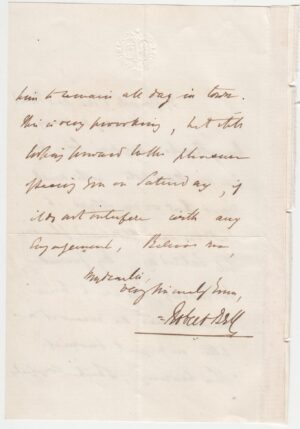 him to remain all day in town.
This is very provoking, but
looking forward to the pleasure
of seeing you on Saturday, if
it does not interfere with any
engagement, Believe me,
My dear
very sincerely Yours,
Robert Bell